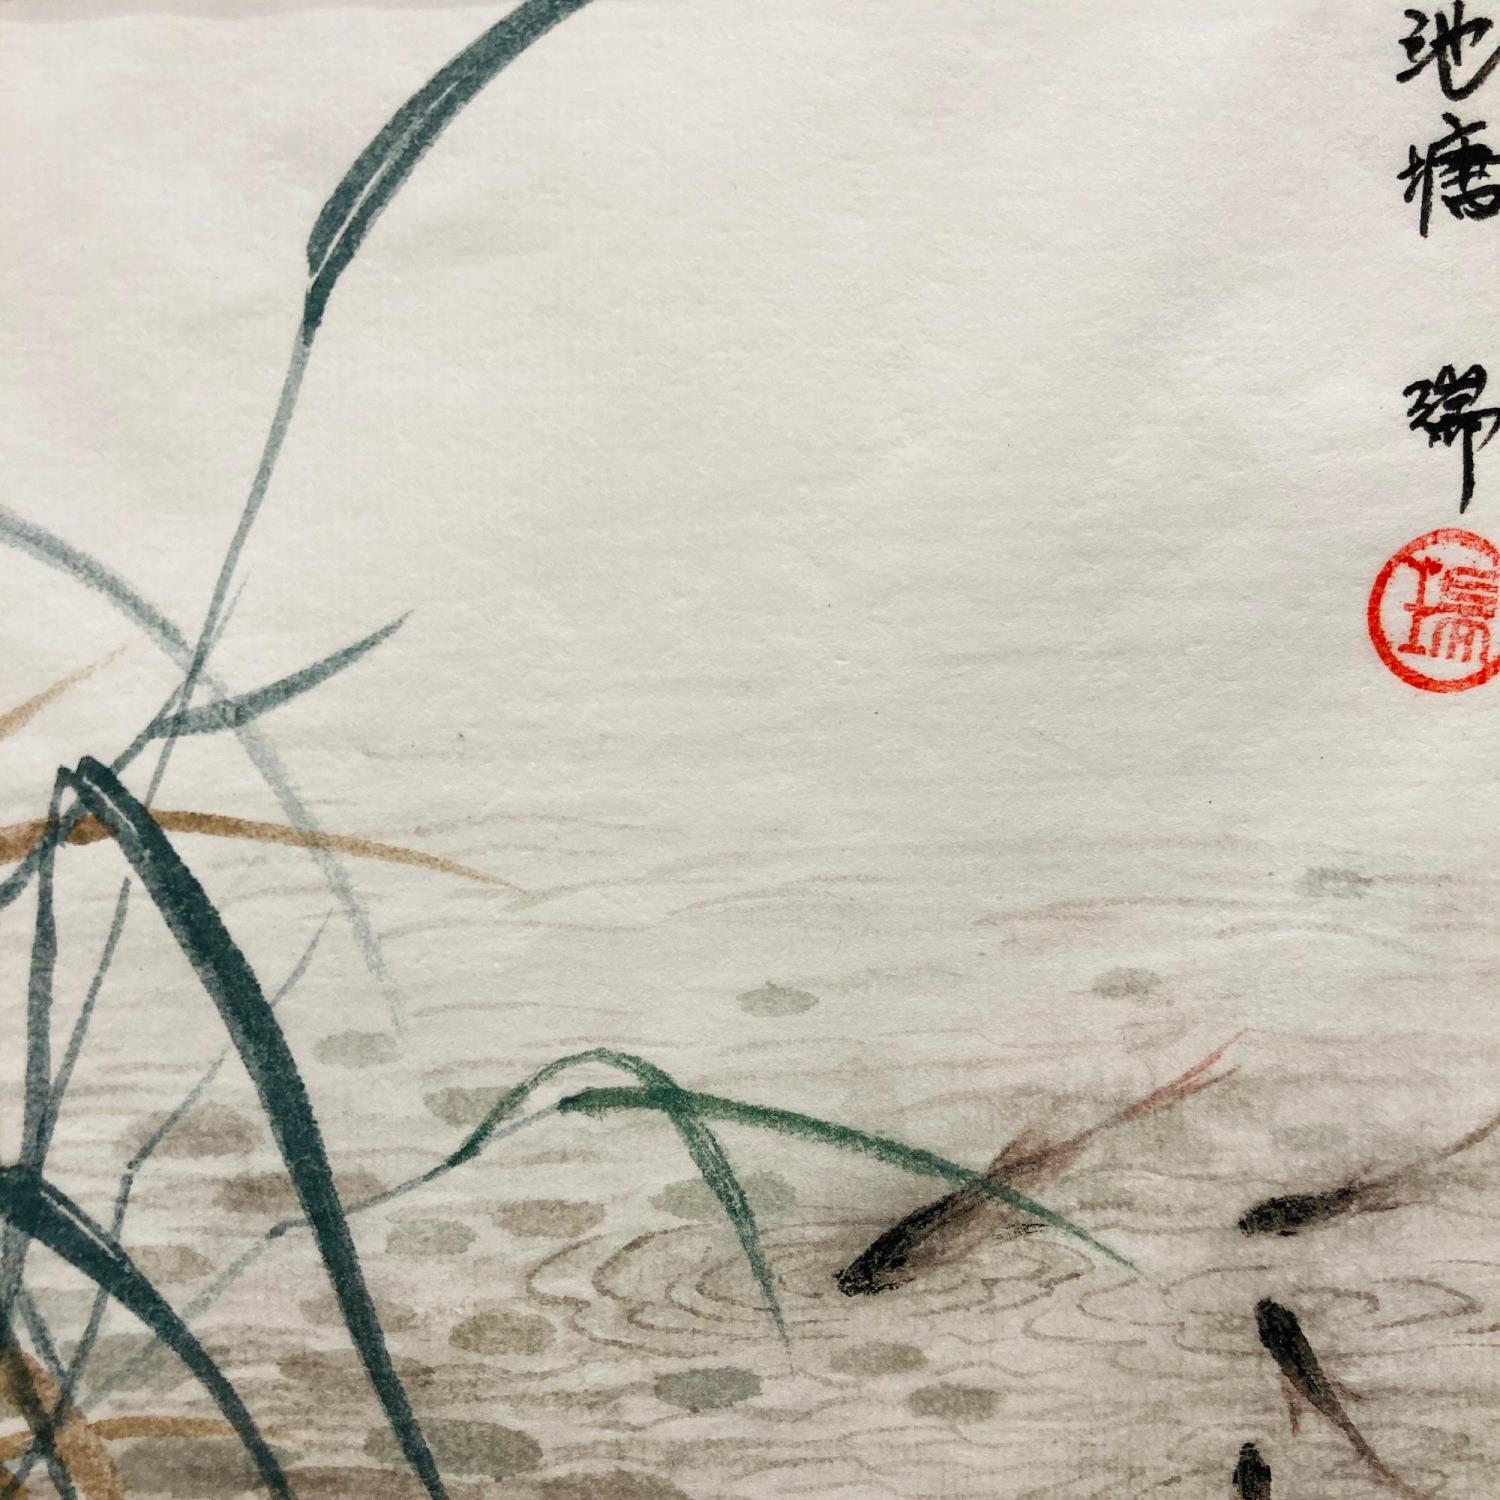 池塘 瑞
瑞